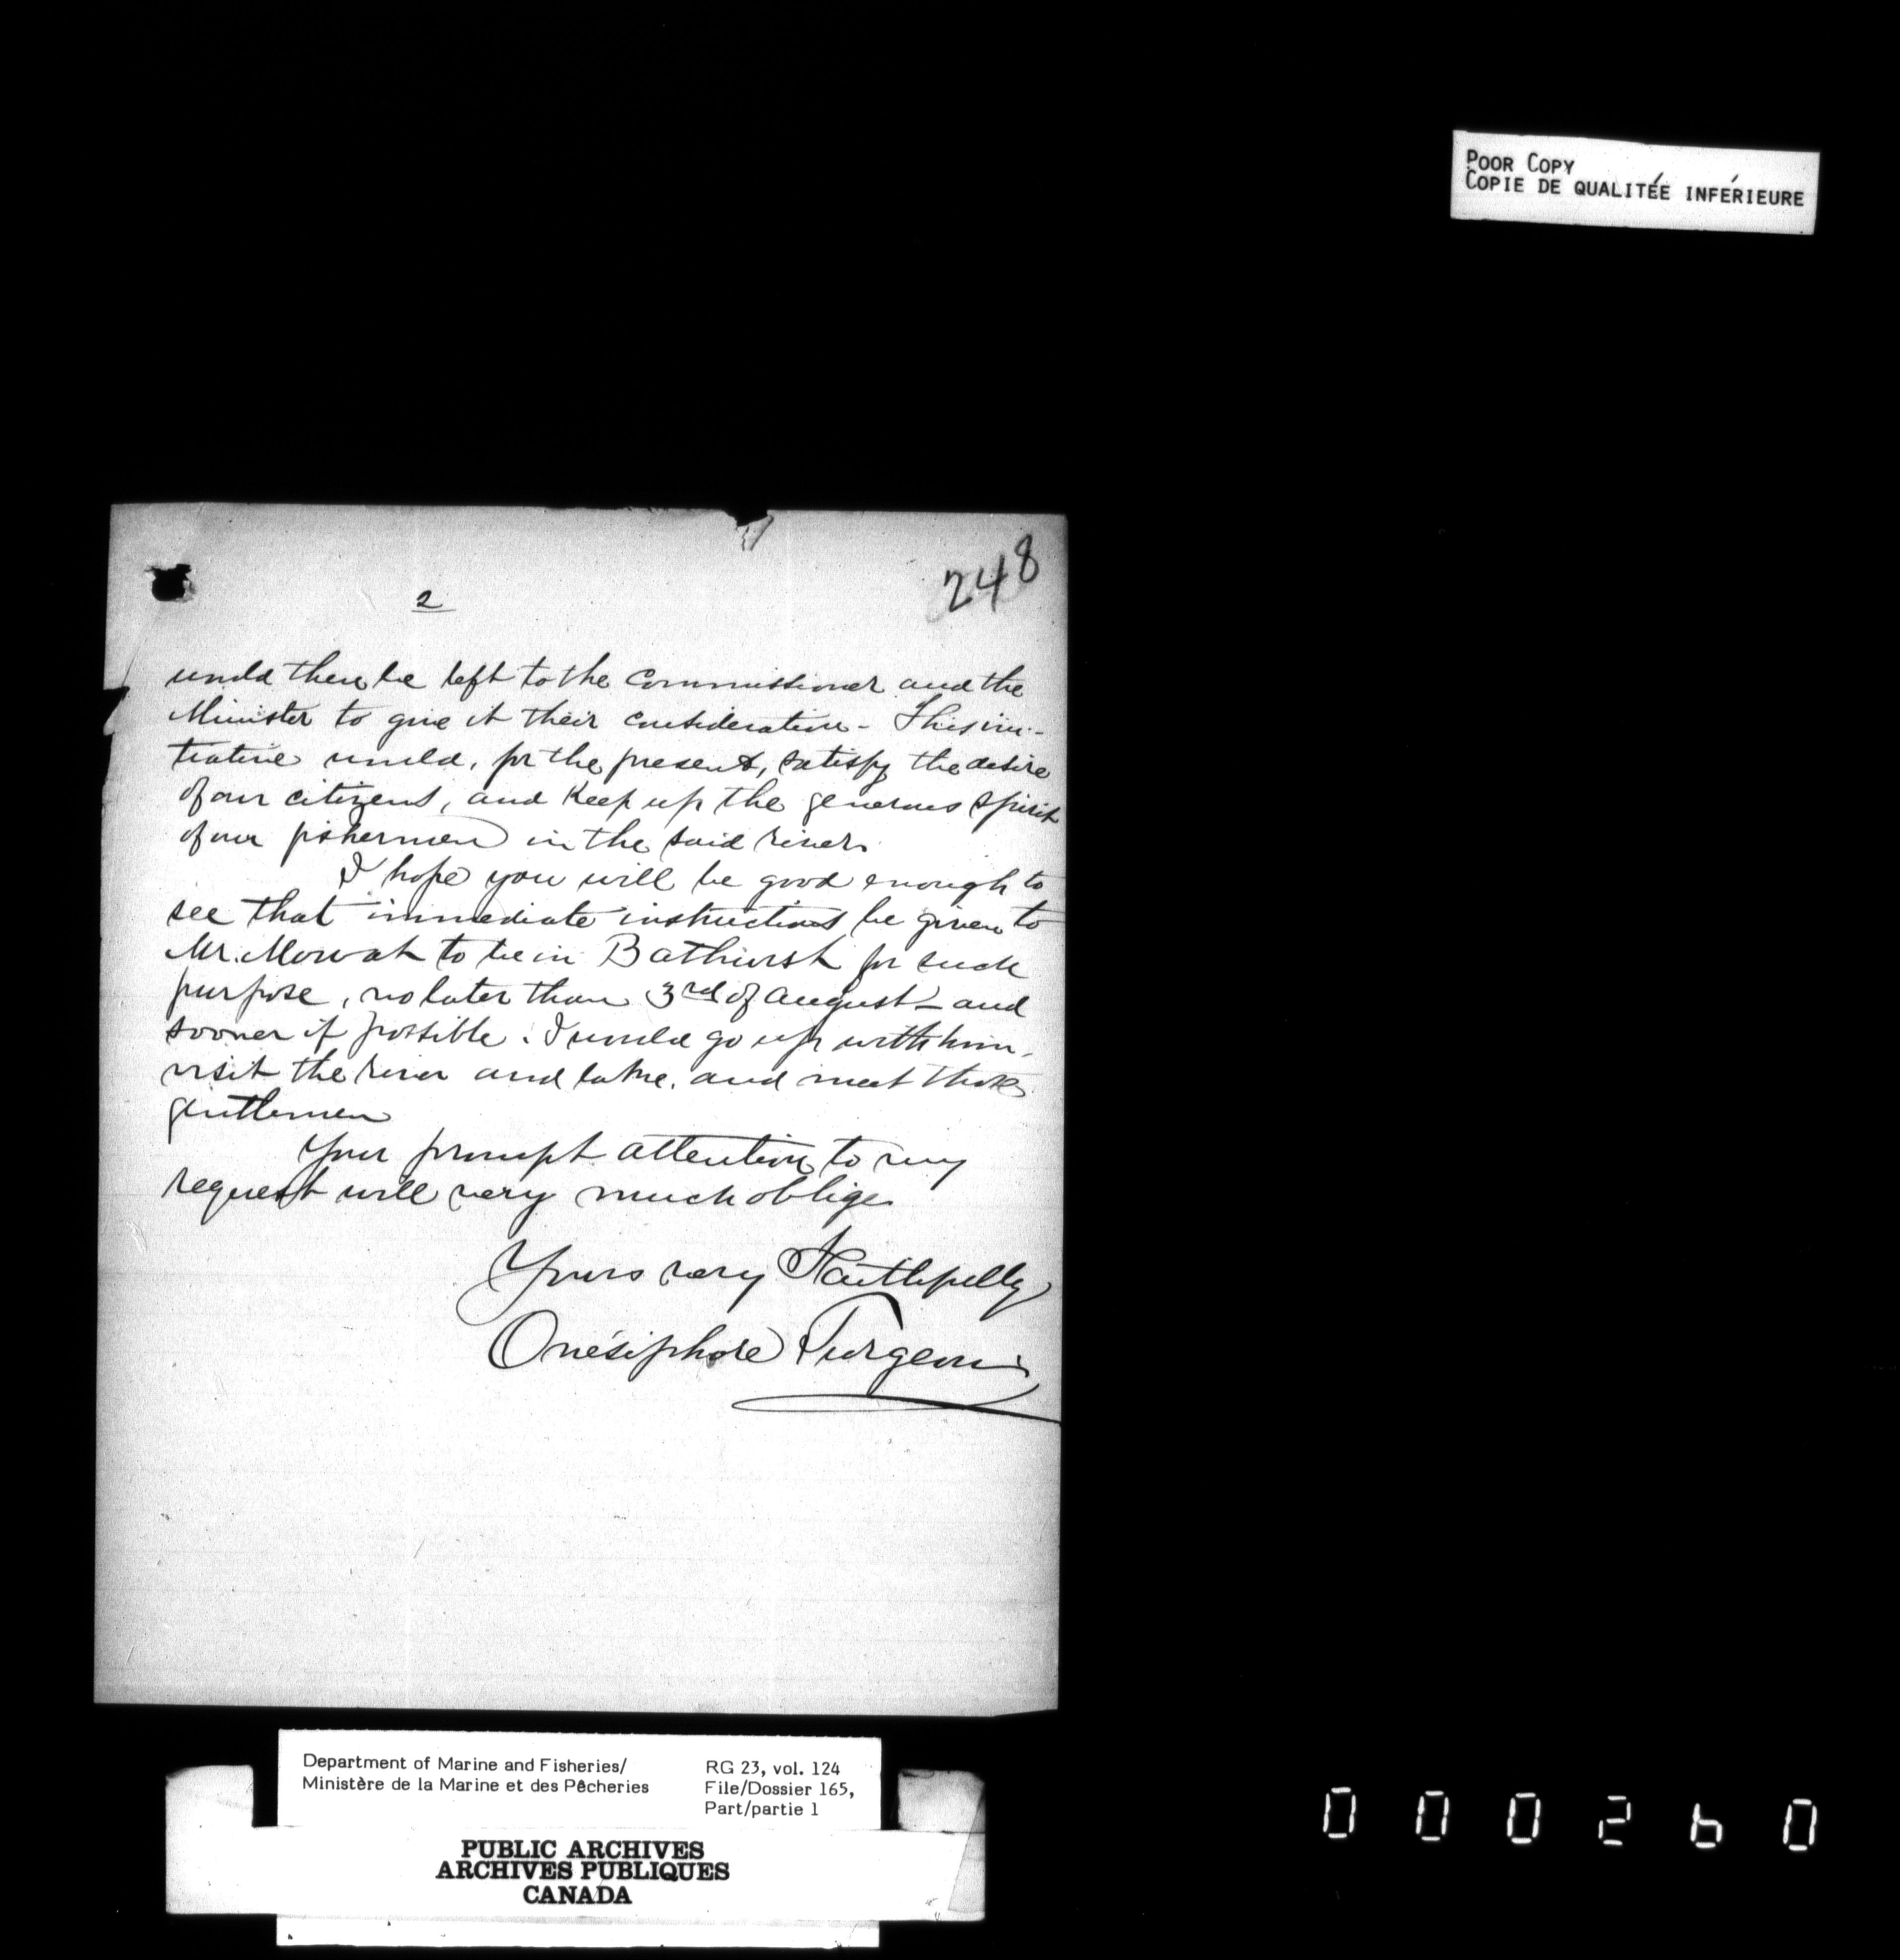 POOR COPY
COPIE DE QUALITÉE INFÉRIEURE
248
2
would then be left to the Commissioner and the
Minister to give it their consideration - This ini-
tiative would, for the present, satisfy the desire
of our citizens, and keep up the generous spirit
of our fishermen in the said river.
I hope you will be good enough to
see that immediate instructions be given to
Mr. Mowat to be in Bathurst for such
purpose, no later than 3rd of August - and
sooner if possible. I would go up with him,
visit the river and lake, and meet those
gentlemen
Your prompt attention to my
request will very much oblige
Yours very Faithfully
Onésiphore Turgeon
Department of Marine and Fisheries/
Ministère de la Marine et des Pêcheries
RG 23, vol. 124
File/Dossier 165,
Part/partie 1
PUBLIC ARCHIVES
ARCHIVES PUBLIQUES
CANADA
000260